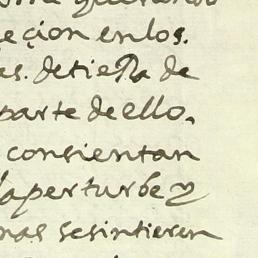 eçion enlos.
as. detierra de
parte de ello,
consientan
la perturbe y
nas sesintieren